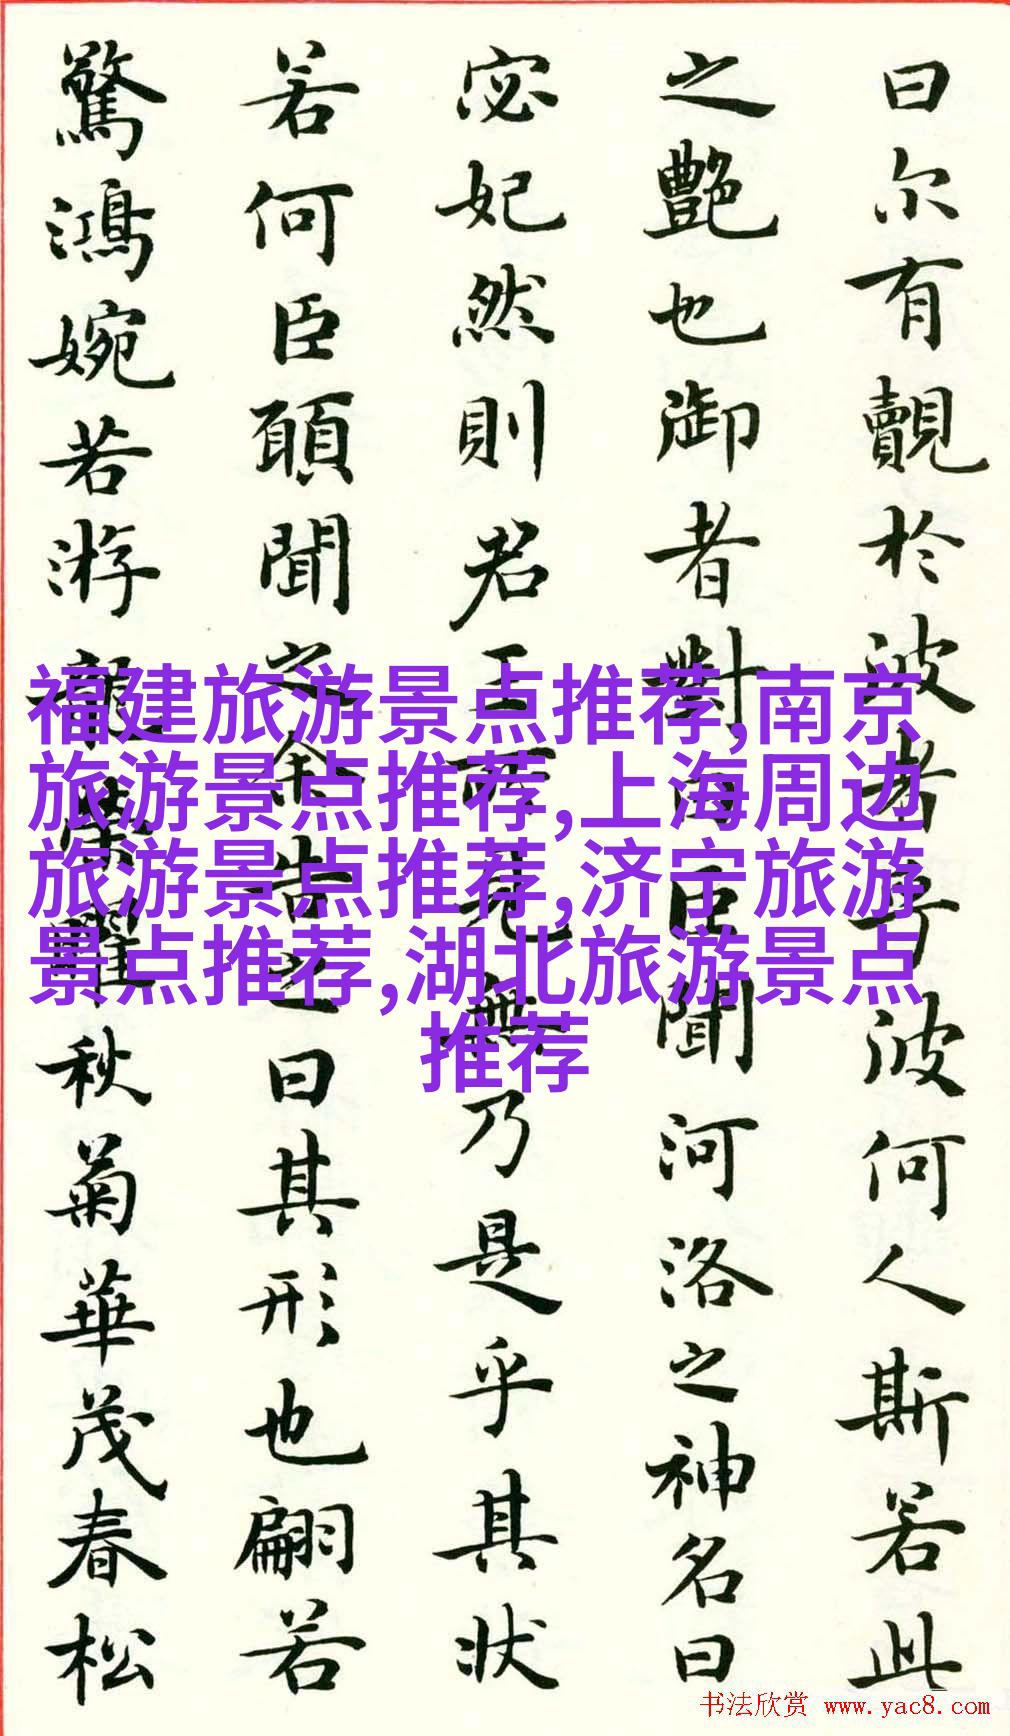 曰尔有觌於波者乎波何人斯若此
之艷也御者對曰臣聞河洛之神名曰
宓妃然則君王所見無乃是乎其状
若何臣頋聞之余告之曰其形也翩若
驚鴻婉若游龍榮耀秋菊華茂春松
福建旅游景点推荐,南京
旅游景点推荐,上海周边
旅游景点推荐,济宁旅游
景点推荐,湖北旅游景点
推荐
书法欣赏 www.yac8.com